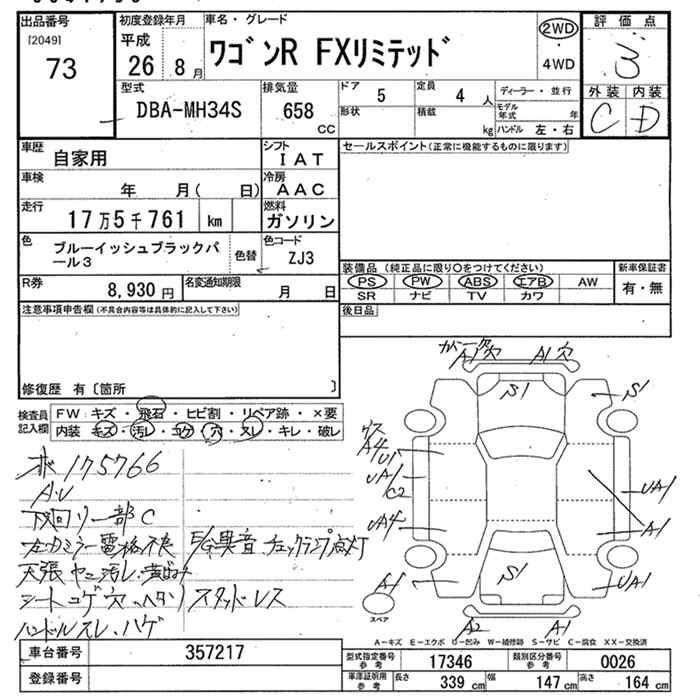 出品番号
[2049]
73
初度登録年月
平成
26年 8月
車名・グレード
ワゴンR FXリミテッド
2WD
・
4WD
評価点
3
外装 内装
C D
型式
DBA-MH34S
排気量
658
CC
ドア 5
定員 4 人
形状
積載 kg
ディーラー・並行
モデル年式 年
ハンドル 左・右
車歴
自家用
シフト
IAT
車検
年 月( 日)
冷房
AAC
走行
17万5千761 km
燃料
ガソリン
色
ブルーイッシュブラックパール3
色替
色コード
ZJ3
R券
8,930円
名変通知期限
月 日
セールスポイント(正常に機能するものに限ります)
装備品(純正品に限り○をつけてください)
PS PW ABS エアB AW
SR ナビ TV カワ
新車保証書
有・無
後日品
注意事項申告欄(不具合内容等は具体的に記入して下さい)
修復歴 有〔箇所 〕
検査員記入欄
FW:キズ・飛石・ヒビ割・リペア跡・×要
内装:キズ・汚レ・コゲ・穴・スレ・キレ・破レ
ホ 175766
AU
下回リ一部C
左カミラー電格不良 E/G異音 チェックランプ点灯
天張ヤニ汚レ・黄ばみ
シートコゲ穴・ヘタリ スタッドレス
ハンドルスレ・ハゲ
ガーニ欠
A1 A1穴
S1 S1
A4 U1
UA1
C2 UA1
UA4 A1
A1 S1 UA1
A2 A1
スペア
A-キズ E-エクボ U-凹み W-補修跡 S-サビ C-腐食 XX-交換済
車台番号 357217
登録番号
型式指定番号 参考 17346
類別区分番号 参考 0026
車庫証明用 参考 長さ 339 cm 幅 147 cm 高さ 164 cm